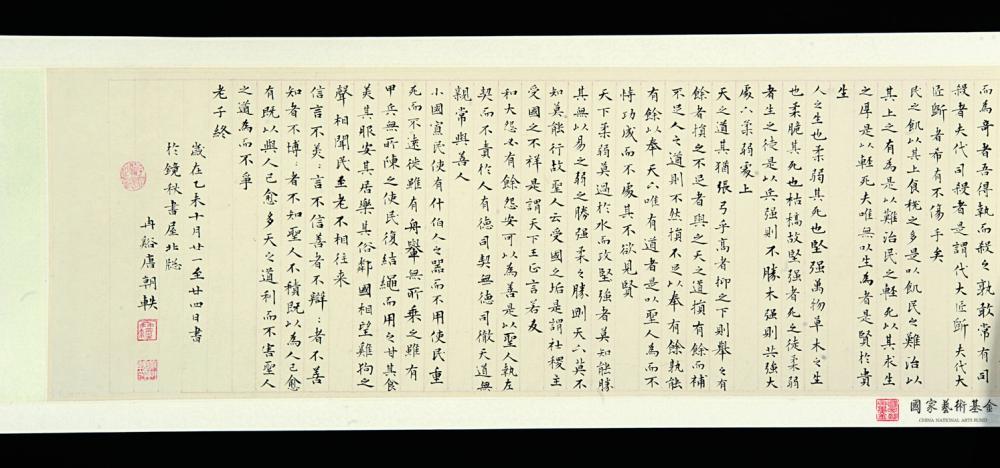 而為奇者吾得執而殺之孰敢常有司
殺者夫代司殺者是謂代大匠斲夫代大
匠斲者希有不傷手矣
民之飢以其上食稅之多是以飢民之難治以
其上之有為是以難治民之輕死以其求生
之厚是以輕死夫唯無以生為者是賢於貴
生
人之生也柔弱其死也堅强萬物草木之生
也柔脆其死也枯槁故堅强者死之徒柔弱
者生之徒是以兵强則不勝木强則共强大
處下柔弱處上
天之道其猶張弓乎高者抑之下則舉之有
餘者損之不足者與之天之道損有餘而補
不足人之道則不然損不足以奉有餘孰能
有餘以奉天下唯有道者是以聖人為而不
恃功成而不處其不欲見賢
天下柔弱莫過於水而攻堅强者莫知能勝
其無以易之弱之勝强柔之勝剛天下莫不
知莫能行故聖人云受國之垢是謂社稷主
受國之不祥是謂天下王正言若反
和大怨必有餘怨安可以為善是以聖人執左
契而不責於人有德司契無德司徹天道無
親常與善人
小國寡民使有什伯人之器而不用使民重
死而不遠徙雖有舟轝無所乘之雖有
甲兵無所陳之使民復結繩而用之甘其食
美其服安其居樂其俗鄰國相望雞狗之
聲相聞民至老不相往来
信言不美:言不信善者不辯:者不善
知者不博:者不知聖人不積既以為人己愈
有既以與人己愈多天之道利而不害聖人
之道為而不爭
老子終
歲在乙未十月廿一至廿四日書
於鏡秋書屋北牕
冉谿唐朝軼
國家藝術基金
CHINA NATIONAL ARTS FUND